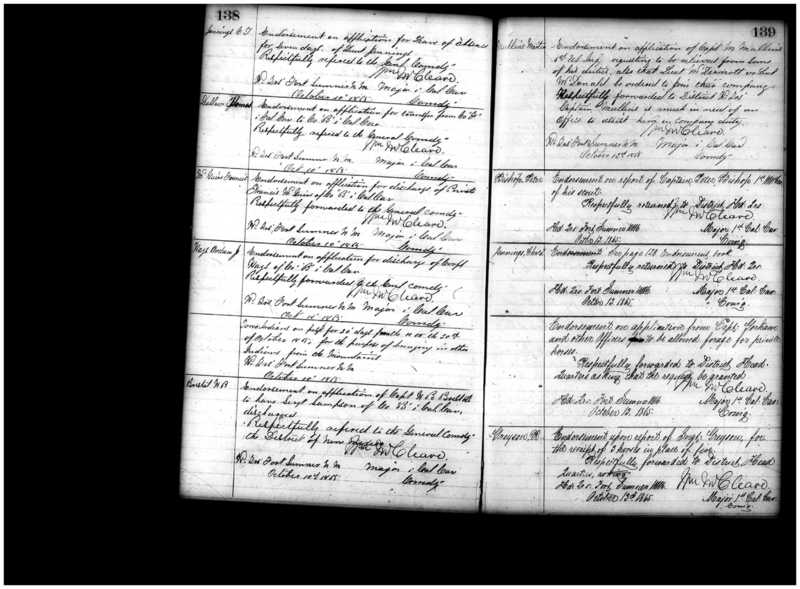 138
Jennings C. T.
Endorsement on application for Leave of Absence
for seven days. of Lieut Jennings
Respectfully referred to the Genl Comdg
Wm McCleave
Hd Qrs Fort Sumner N M Major 1 Cal Cav
October 10" 1865 Comdg
Thomas
Endorsement on application for transfer from Co
1 Cal Cav to Co "B" 1 Cal Cav
Respectfully referred to the General Comdg
Wm McCleave
Hd Qrs Fort Sumner N M Major 1 Cal Cav
Oct 10" 1865 Comdg
Endorsement on application for discharge of Private
Francis of Co "B" 1 Cal Cav
Respectfully forwarded to the General comdg
Wm McCleave
Hd Qrs Fort Sumner N M Major 1 Cal Cav
October 10" 1865 Comdg
Endorsement on application for discharge of
of Co "B" 1 Cal Cav
Respectfully forwarded to the Genl comdg
Wm McCleave
Hd Qrs Fort Sumner N M Major 1 Cal Cav
Oct 10" 1865 Comdg
Indians on pass for 20 days from the 10" to the 30th
of October 1865 for the purpose of bringing in other
Indians from the Mountains
Hd Qrs Fort Sumner N M
October 10" 1865
Endorsement on application of Capt
to have Sergt Sampson of Co "B" 1 Cal Cav
discharged
Respectfully referred to the General Comdg
the District of New Mexico
Wm McCleave
Hd Qrs Fort Sumner N M Major 1 Cal Cav
October 10" 1865 Comdg
139
Mullins Martin
Endorsement on application of Capt M Mullins
1st Cal Inf requesting to be relieved from some
of his duties, also that Lieut or Lieut
McDonald be ordered to join their company
Respectfully forwarded to District Hd Qrs
Captain Mullins is much in need of an
Officer to assist him in company duty.
Wm McCleave
Hd Qrs Fort Sumner N M Major 1 Cal Cav
October 12" 1865 Comdg
Bishop Peter
Endorsement on report of Captain Peter Bishop 1st
of his scout.
Respectfully returned to District Hd. Qrs
Wm McCleave
Hd. Qrs. Fort Sumner N.M. Major 1st Cal Cav
Octbr 12. 1865. Comdg
Jennings,
Endorsement See page 128 Endorsement book
Respectfully returned to District Hd. Qrs.
Wm McCleave
Hd. Qrs. Fort Sumner N.M. Major 1st Cal Cav
October 12. 1865. Comdg
Endorsement on application from Capt. Gorham
and other Officers to be allowed forage for private
horses.
Respectfully forwarded to District Head
Quarters asking that the request be granted
Wm McCleave.
Hd. Qrs. Fort Sumner N.M. Major 1st Cal. Cav
October 12. 1865. Comdg
Greyson,
Endorsement upon report of Greyson for
the receipt of horses in place of
Respectfully forwarded to District Head
Quarters,
Wm McCleave
Hd. Qrs. Fort Sumner N.M.
October 13th 1865 Major 1st Cal Cav
Comdg